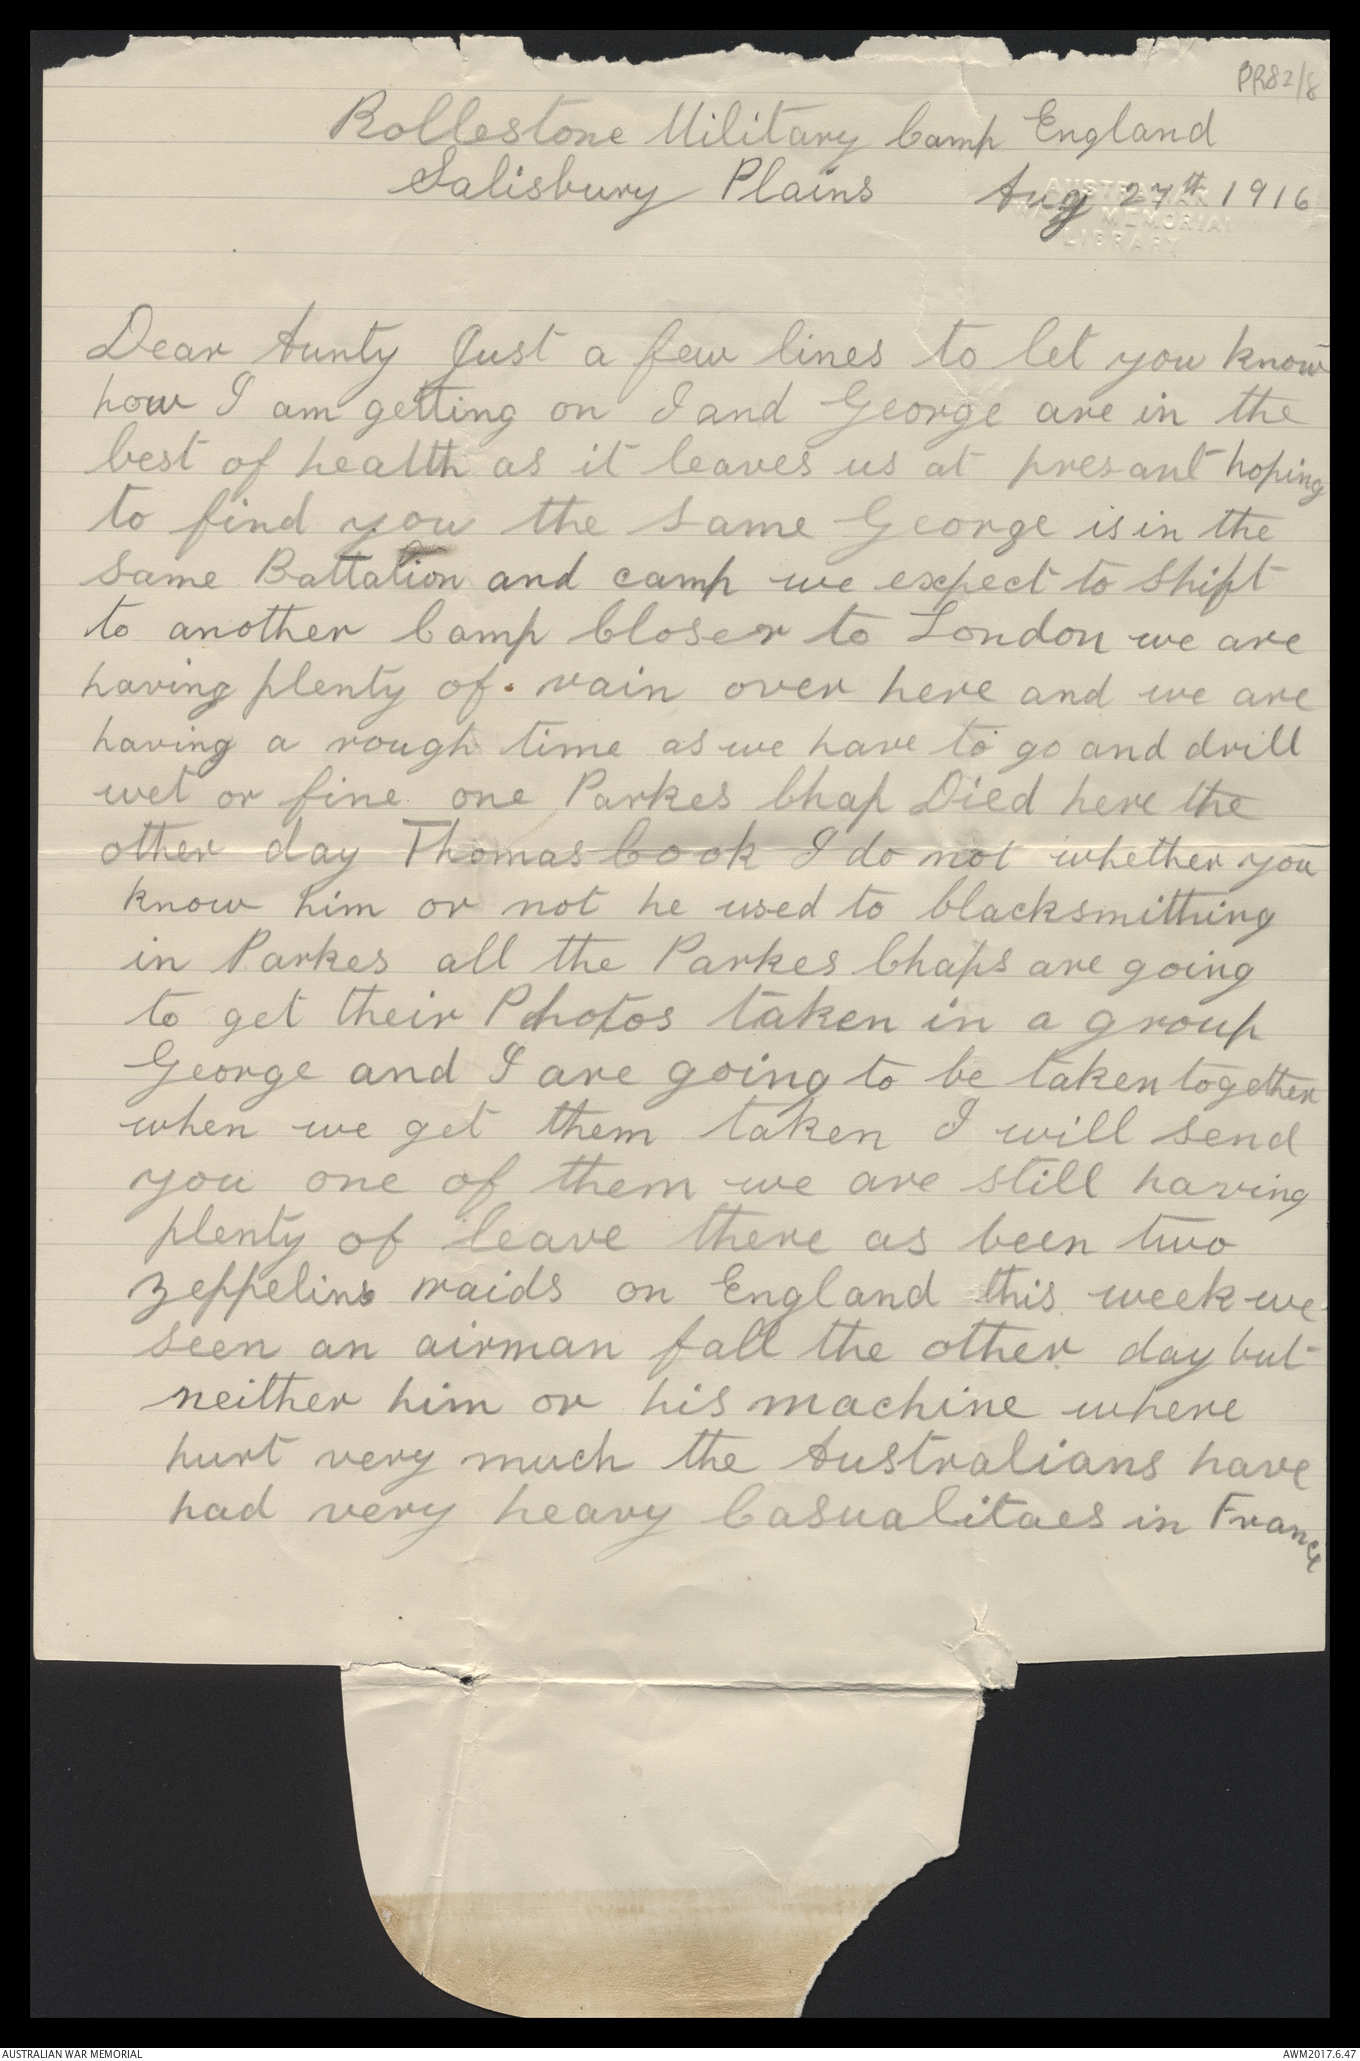 PR82/8
Rollestone Military Camp England
Salisbury Plains Aug 27th 1916
AUSTRALIAN
WAR MEMORIAL
LIBRARY
Dear Aunty Just a few lines to let you know
how I am getting on I and George are in the
best of health as it leaves us at presant hoping
to find you the same George is in the
same Battalion and camp we expect to shift
to another Camp Closer to London we are
having plenty of rain over here and we are
having a rough time as we have to go and drill
wet or fine one Parkes Chap Died here the
other day Thomas Cook I do not whether you
know him or not he used to blacksmithing
in Parkes all the Parkes Chaps are going
to get their Photos taken in a group
George and I are going to be taken together
when we get them taken I will send
you one of them we are still having
plenty of leave there as been two
zeppelins raids on England this week we
seen an airman fall the other day but
neither him or his machine where
hurt very much the Australians have
had very heavy Casualitaes in France
AUSTRALIAN WAR MEMORIAL
AWM2017.6.47